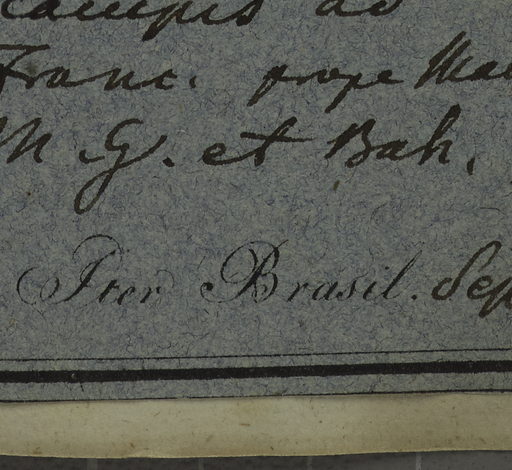 campis ad
Franc. prope
M G. et Bah.
Iter Brasil. Sep